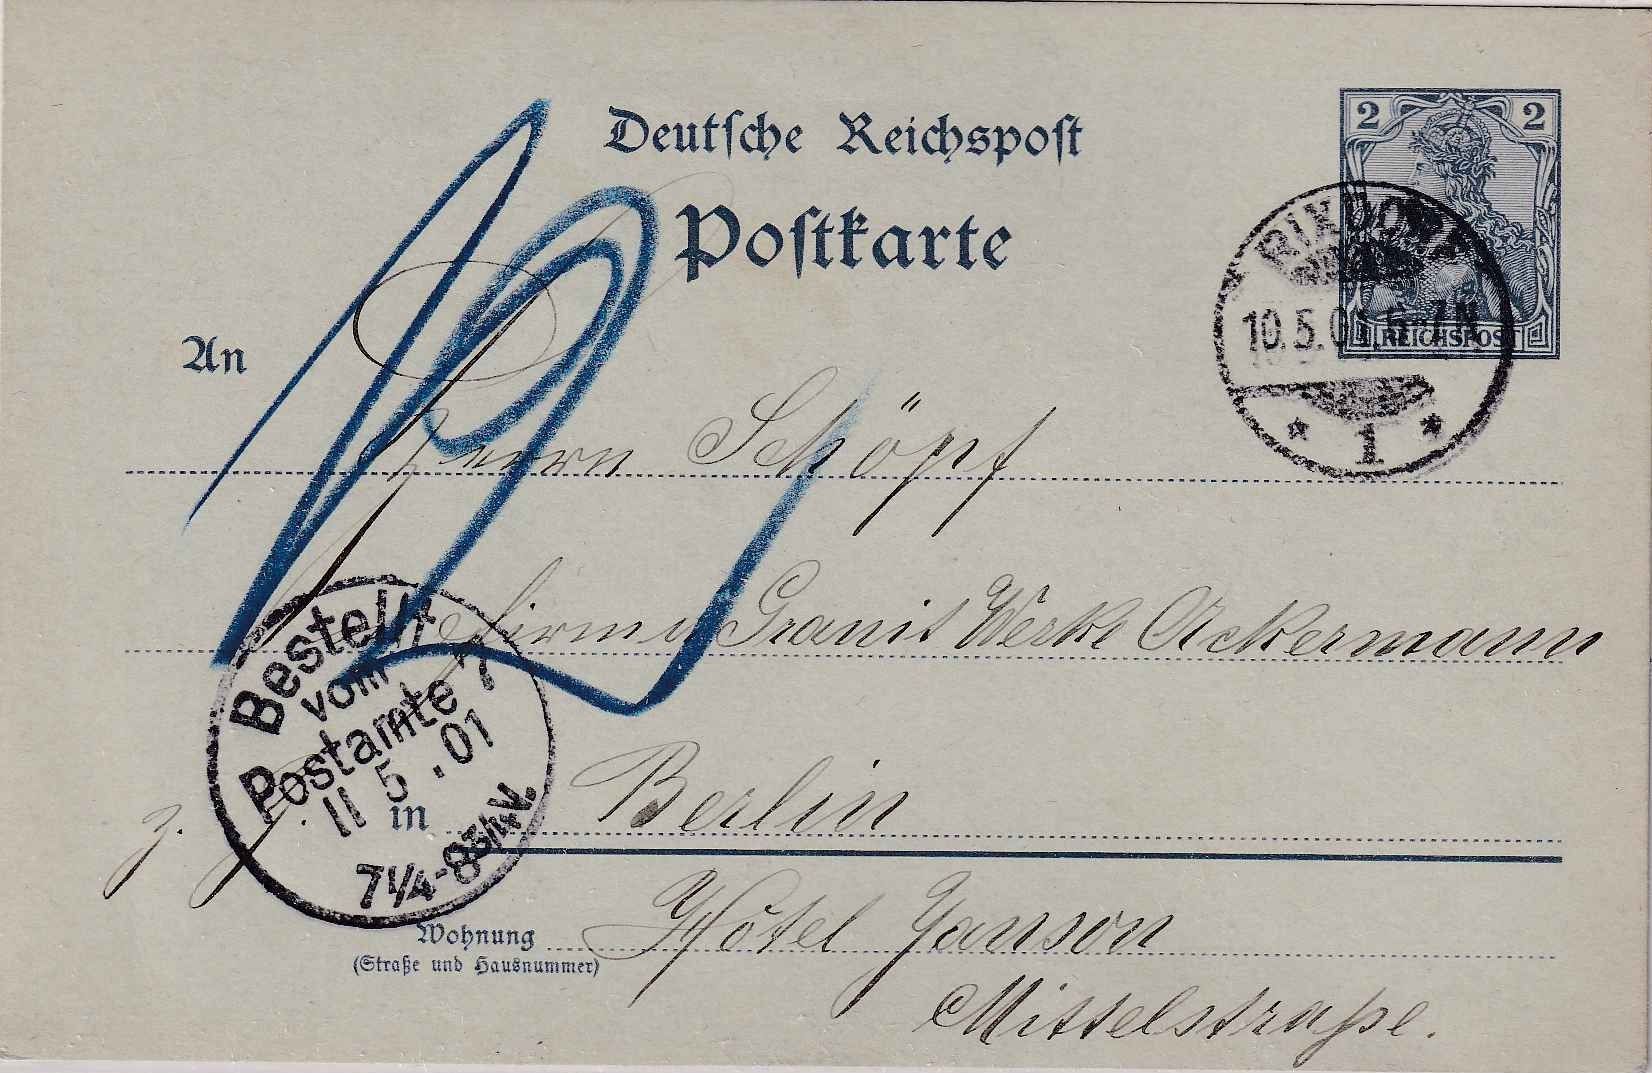 Deutsche Reichspost
Postkarte
2 2
REICHSPOST
RIXDORF
10.5.01. 6-7N.
* 1 *
An
Herrn Schöpf
Firma Granit Werke Ackermann
Bestellt
vom
Postamte 7
11 5 .01
7 1/4-8 3/4N.
z. Z. in Berlin
Wohnung Hôtel Janson
(Straße und Hausnummer)
Mittelstraße.